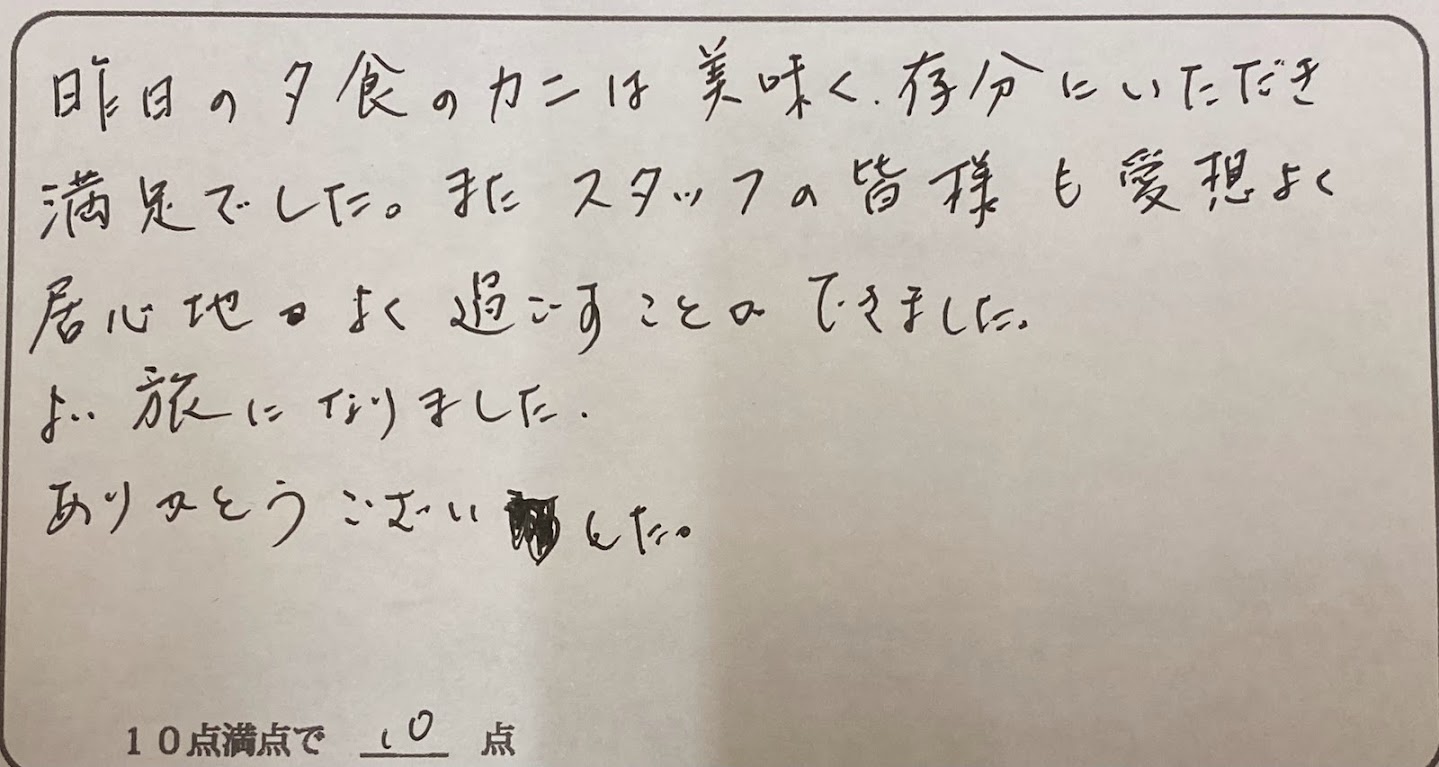 昨日の夕食のカニは美味く、存分にいただき
満足でした。またスタッフの皆様も愛想よく
居心地のよく過ごすことができました。
よい旅になりました。
ありがとうございました。
10点満点で 10 点